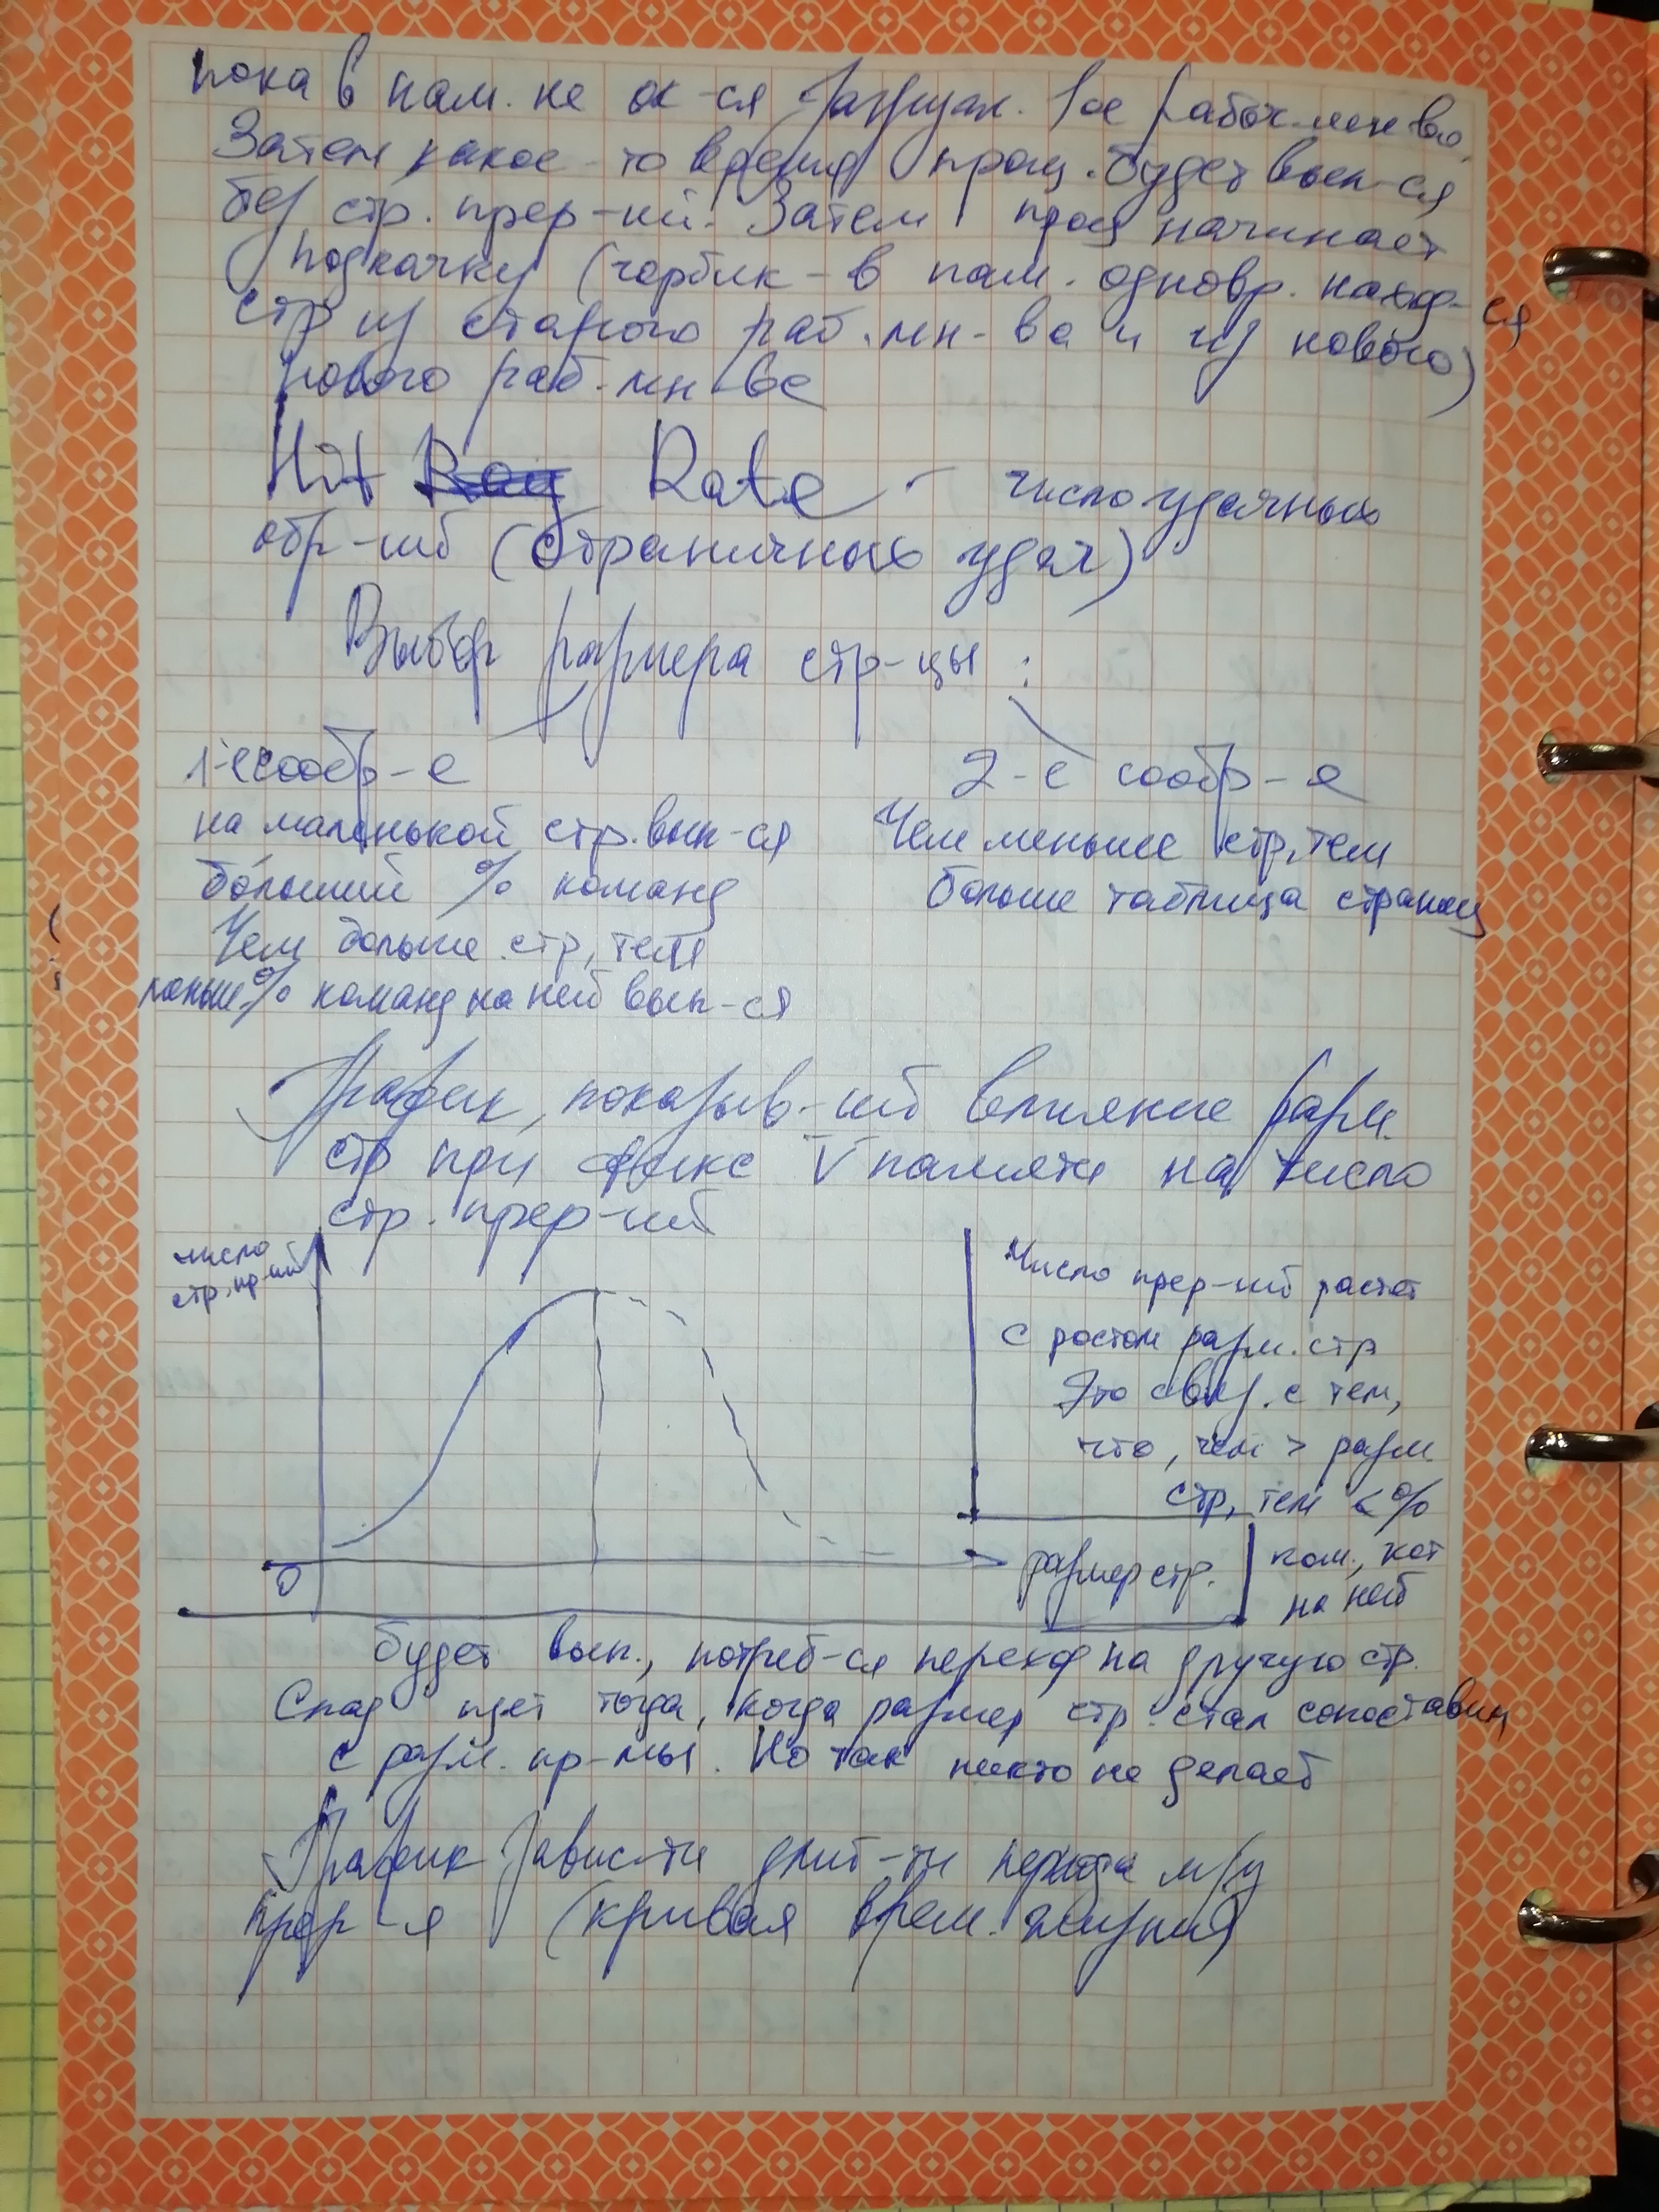 пока в пам. не ок-ся загружен. все рабоч. мн-во.
Затем какое-то время проц. будет вып-ся
без стр. прер-ий. Затем проц начинает
подкачку (горбик - в пам. одновр. наход-ся
стр из старого раб. мн-ва и из нового)
нового раб. мн-ва
Hit Rate - число удачных
обр-ий (страничных удач)
Выбор размера стр-цы :
1-е сообр-е
на маленькой стр. вып-ся
бо́льший % команд
Чем больше стр, тем
меньше % команд на ней вып-ся
2-е сообр-е
Чем меньше стр, тем
больше таблица страниц
График, показыв-ий влияние разм.
стр при фикс V памяти на число
стр. прер-ий
число
стр. пр-ий
0
размер стр.
Число прер-ий растет
с ростом разм. стр
Это связ. с тем,
что, чем > разм.
стр, тем < %
ком., кот
на ней
будет вып., потреб-ся переход на другую стр.
Спад идет тогда, когда размер стр. стал сопоставим
с разм. пр-мы. Но так никто не делает
График завис-ти длит-ти периода м/у
прер-я (кривая врем. жизни)